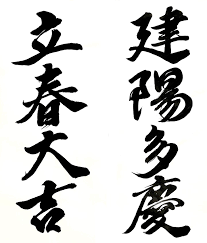 建陽多慶
立春大吉